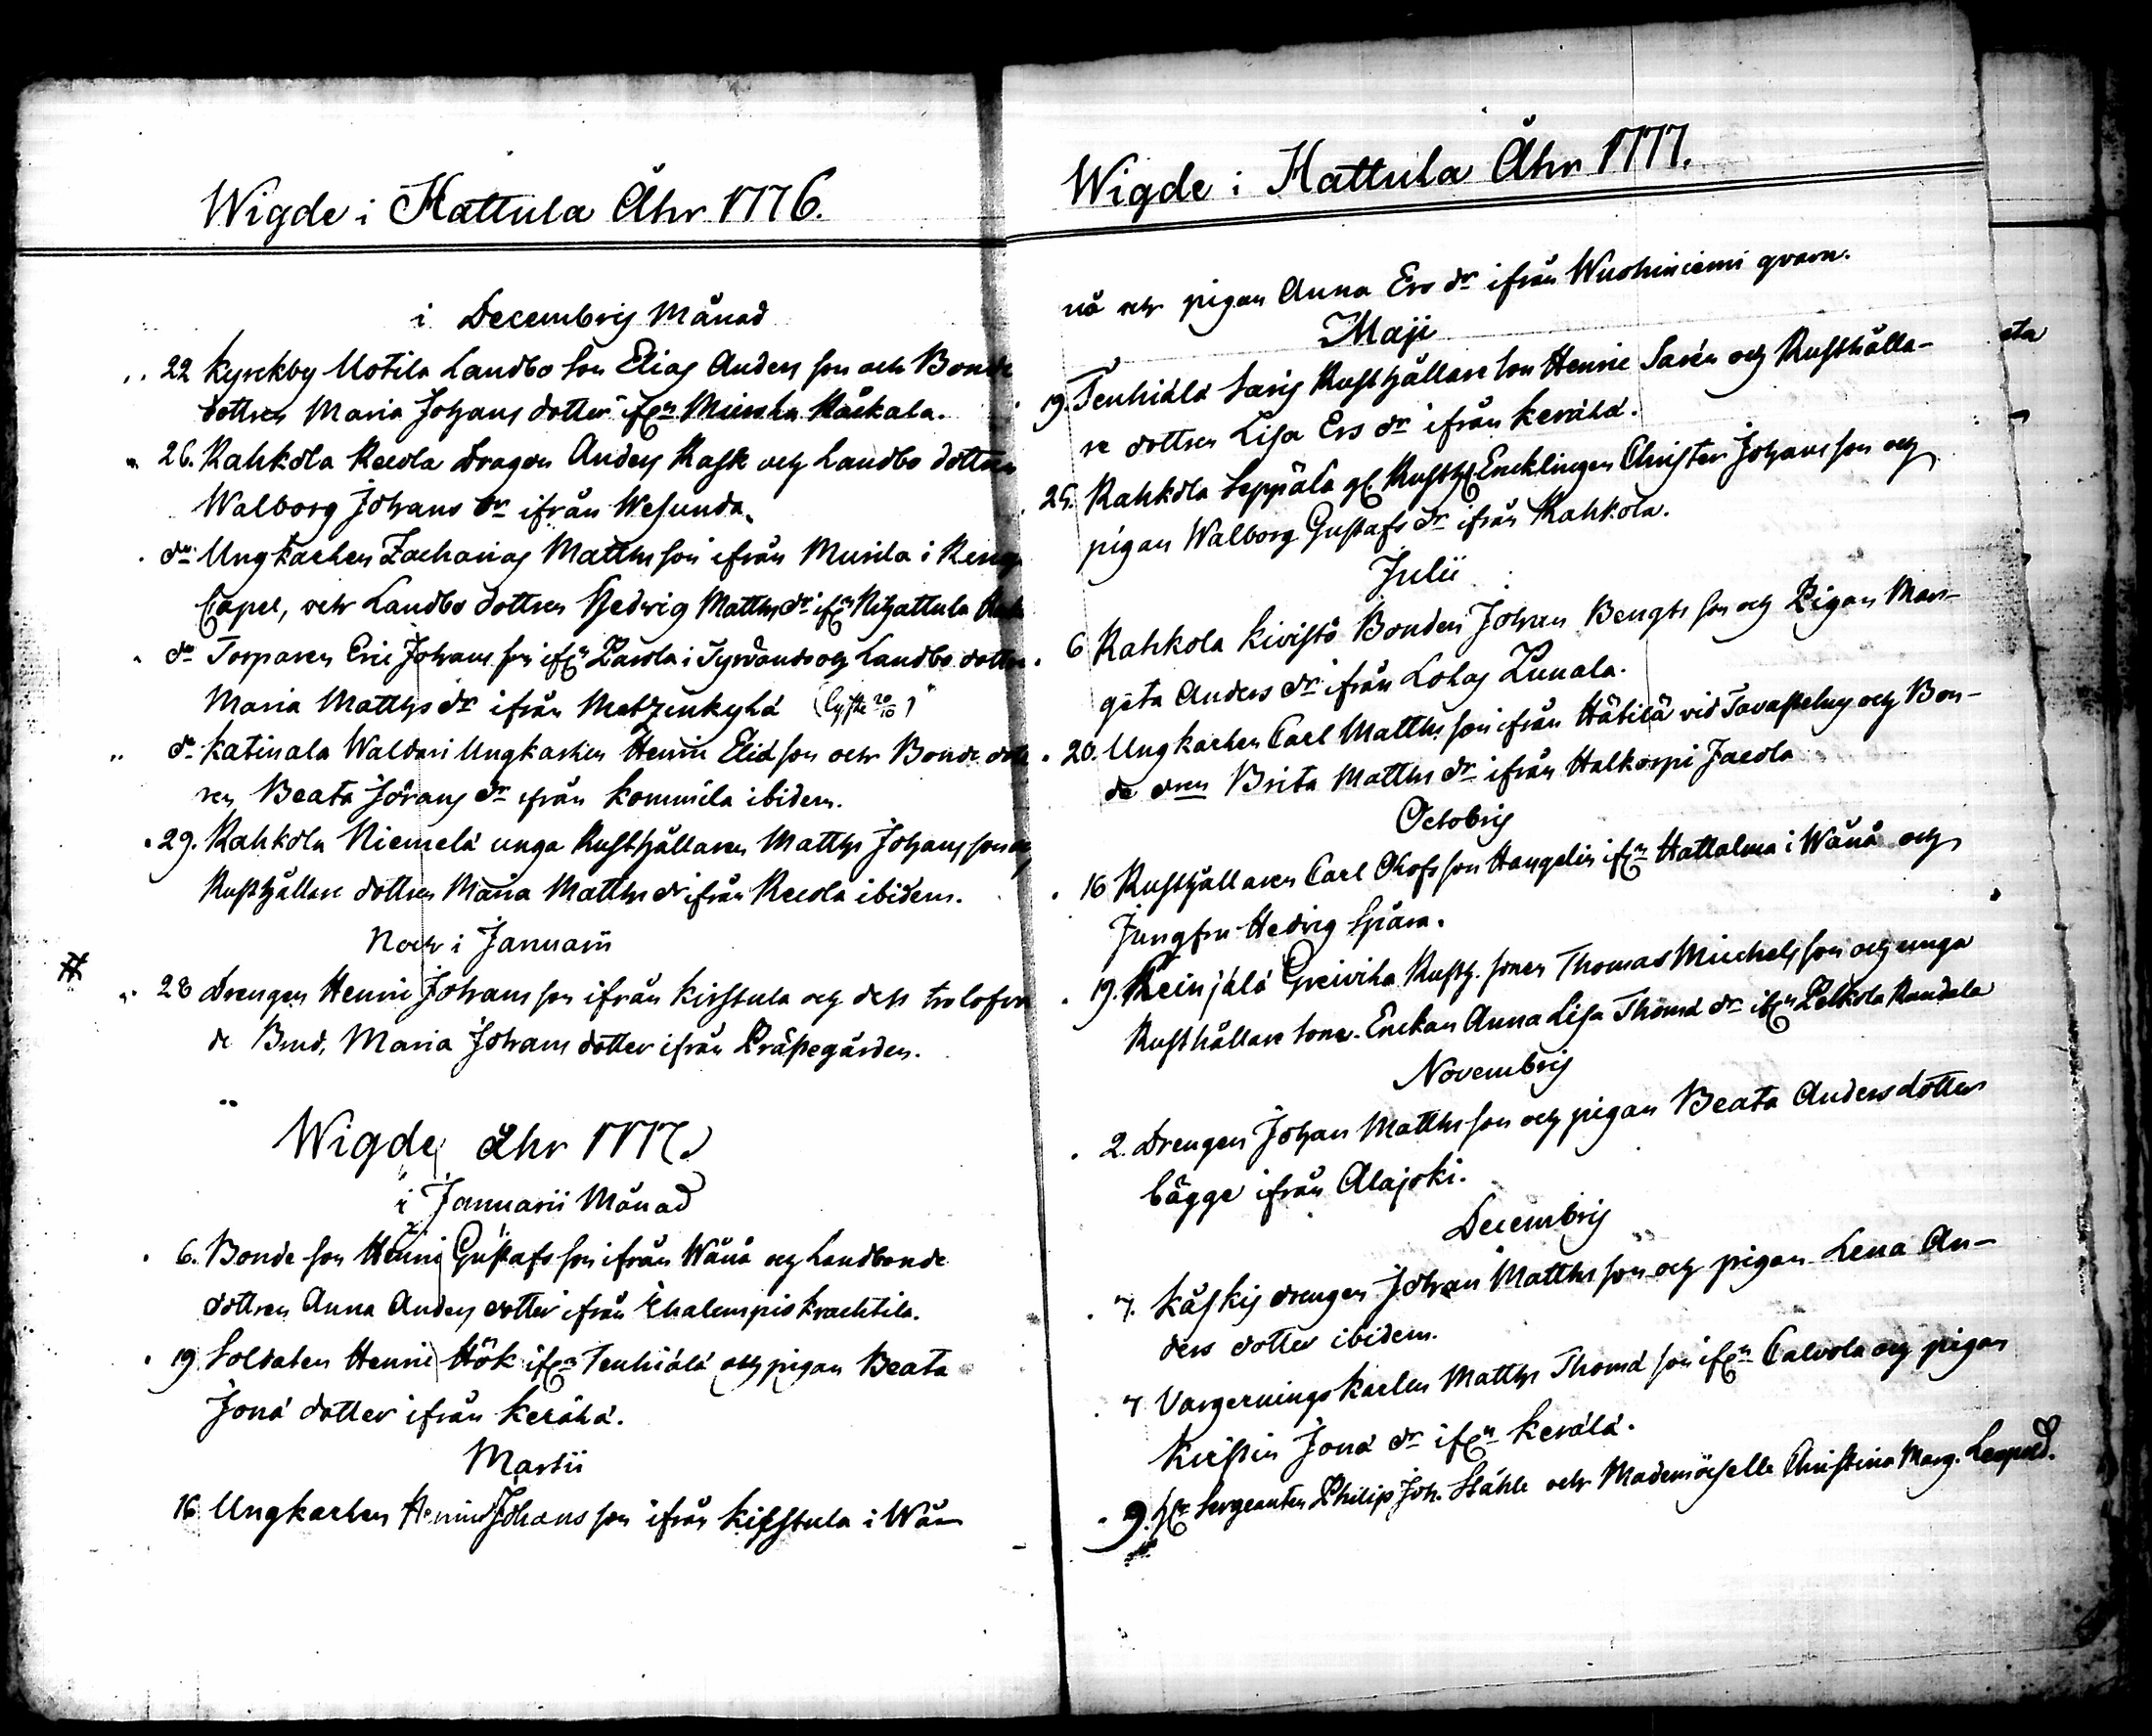 Wigde i Hattula Åhr 1776.
i Decembris Månad
22 Kyrckby Motila Landbo son Elias Anders son och Bonde
dottren Maria Johans dotter ifrn Mierola Håckala.
26. Rahkola Recola Dragon Anders Rask och Landbo dottren
Walborg Johans dr ifrån Wesunda.
do Ungkarlen Zacharias Matths son ifrån Munila i Reng
Capel, och Landbo dottren Hedvig Matths dr ifrn Nihattula
do Torparen Eric Johans son ifrn Parola i Tyrvändö och Landbo dotter
Maria Matths dr ifrån Metzenkylä (lyste 20/10)
do Katinala Waldari Ungkarlen Henric Eliæ son och Bonde dott
ren Beata Johans dr ifrån Kommila ibidem.
29. Rahkola Niemelä unga Rusthållaren Matths Johans son och
Rusthållare dottren Maria Matths dr ifrån Recola ibidem.
Noch i Januarii
28 Drengen Henric Johans son ifrån Kirstula och dess trolofva
de Brud, Maria Johans dotter ifrån Prästegården.
Wigde Åhr 1777.
i Januarii Månad
6. Bonde son Henric Gustafs son ifrån Wånå och Landbonde
dottren Anna Anders dotter ifrån Ihalempis Krachtila.
19 Soldaten Henric Hök ifrn Tenhiälä och pigan Beata
Jonæ dotter ifrån Kerälä.
Martii
16 Ungkarlen Henric Johans son ifrån Kirstula i Wå-
Wigde i Hattula Åhr 1777.
nå och pigan Anna Ers dr ifrån Wuohiniemi qvarn.
Maji
19. Tenhiälä Saris Rusthållare son Henric Sarén och Rusthålla-
re dottren Lisa Ers dr ifrån Kerälä.
25. Rahkola Seppälä gl Rusth Encklingen Christer Johans son och
pigan Walborg Gustafs dr ifrån Rahkola.
Julii
6 Rahkola Kivistö Bonden Johan Bengts son och Pigan Mar-
geta Anders dr ifrån Lolas Lunala.
20. Ungkarlen Carl Matths son ifrån Hätilä vid Tavastehus och Bon-
de dren Brita Matths dr ifrån Halkorpi Jacola
Octobris
16 Rusthållaren Carl Olofs son Hangelin ifrn Hattelma i Wånå och
Jungfru Hedvig Spåra.
19. Reinjälä Greivilä Rusth. sonen Thomas Michels son och unga
Rusthållare sone. Enckan Anna Lisa Thomæ dr ifrn Pelkola Randala
Novembris
2. Drengen Johan Matths son och pigan Beata Andersdotter
bägge ifrån Alajoki.
Decembris
7. Käskis drengen Johan Matths son och pigan Lena An-
ders dotter ibidem.
7 Vargeringskarlen Matths Thomæ son ifrn Calvola och pigan
Kirstin Jonæ dr ifrn Kerälä.
9. Hr Sergeanten Philip Joh. Ståhle och Mademoiselle Christina Marg. Leopold.